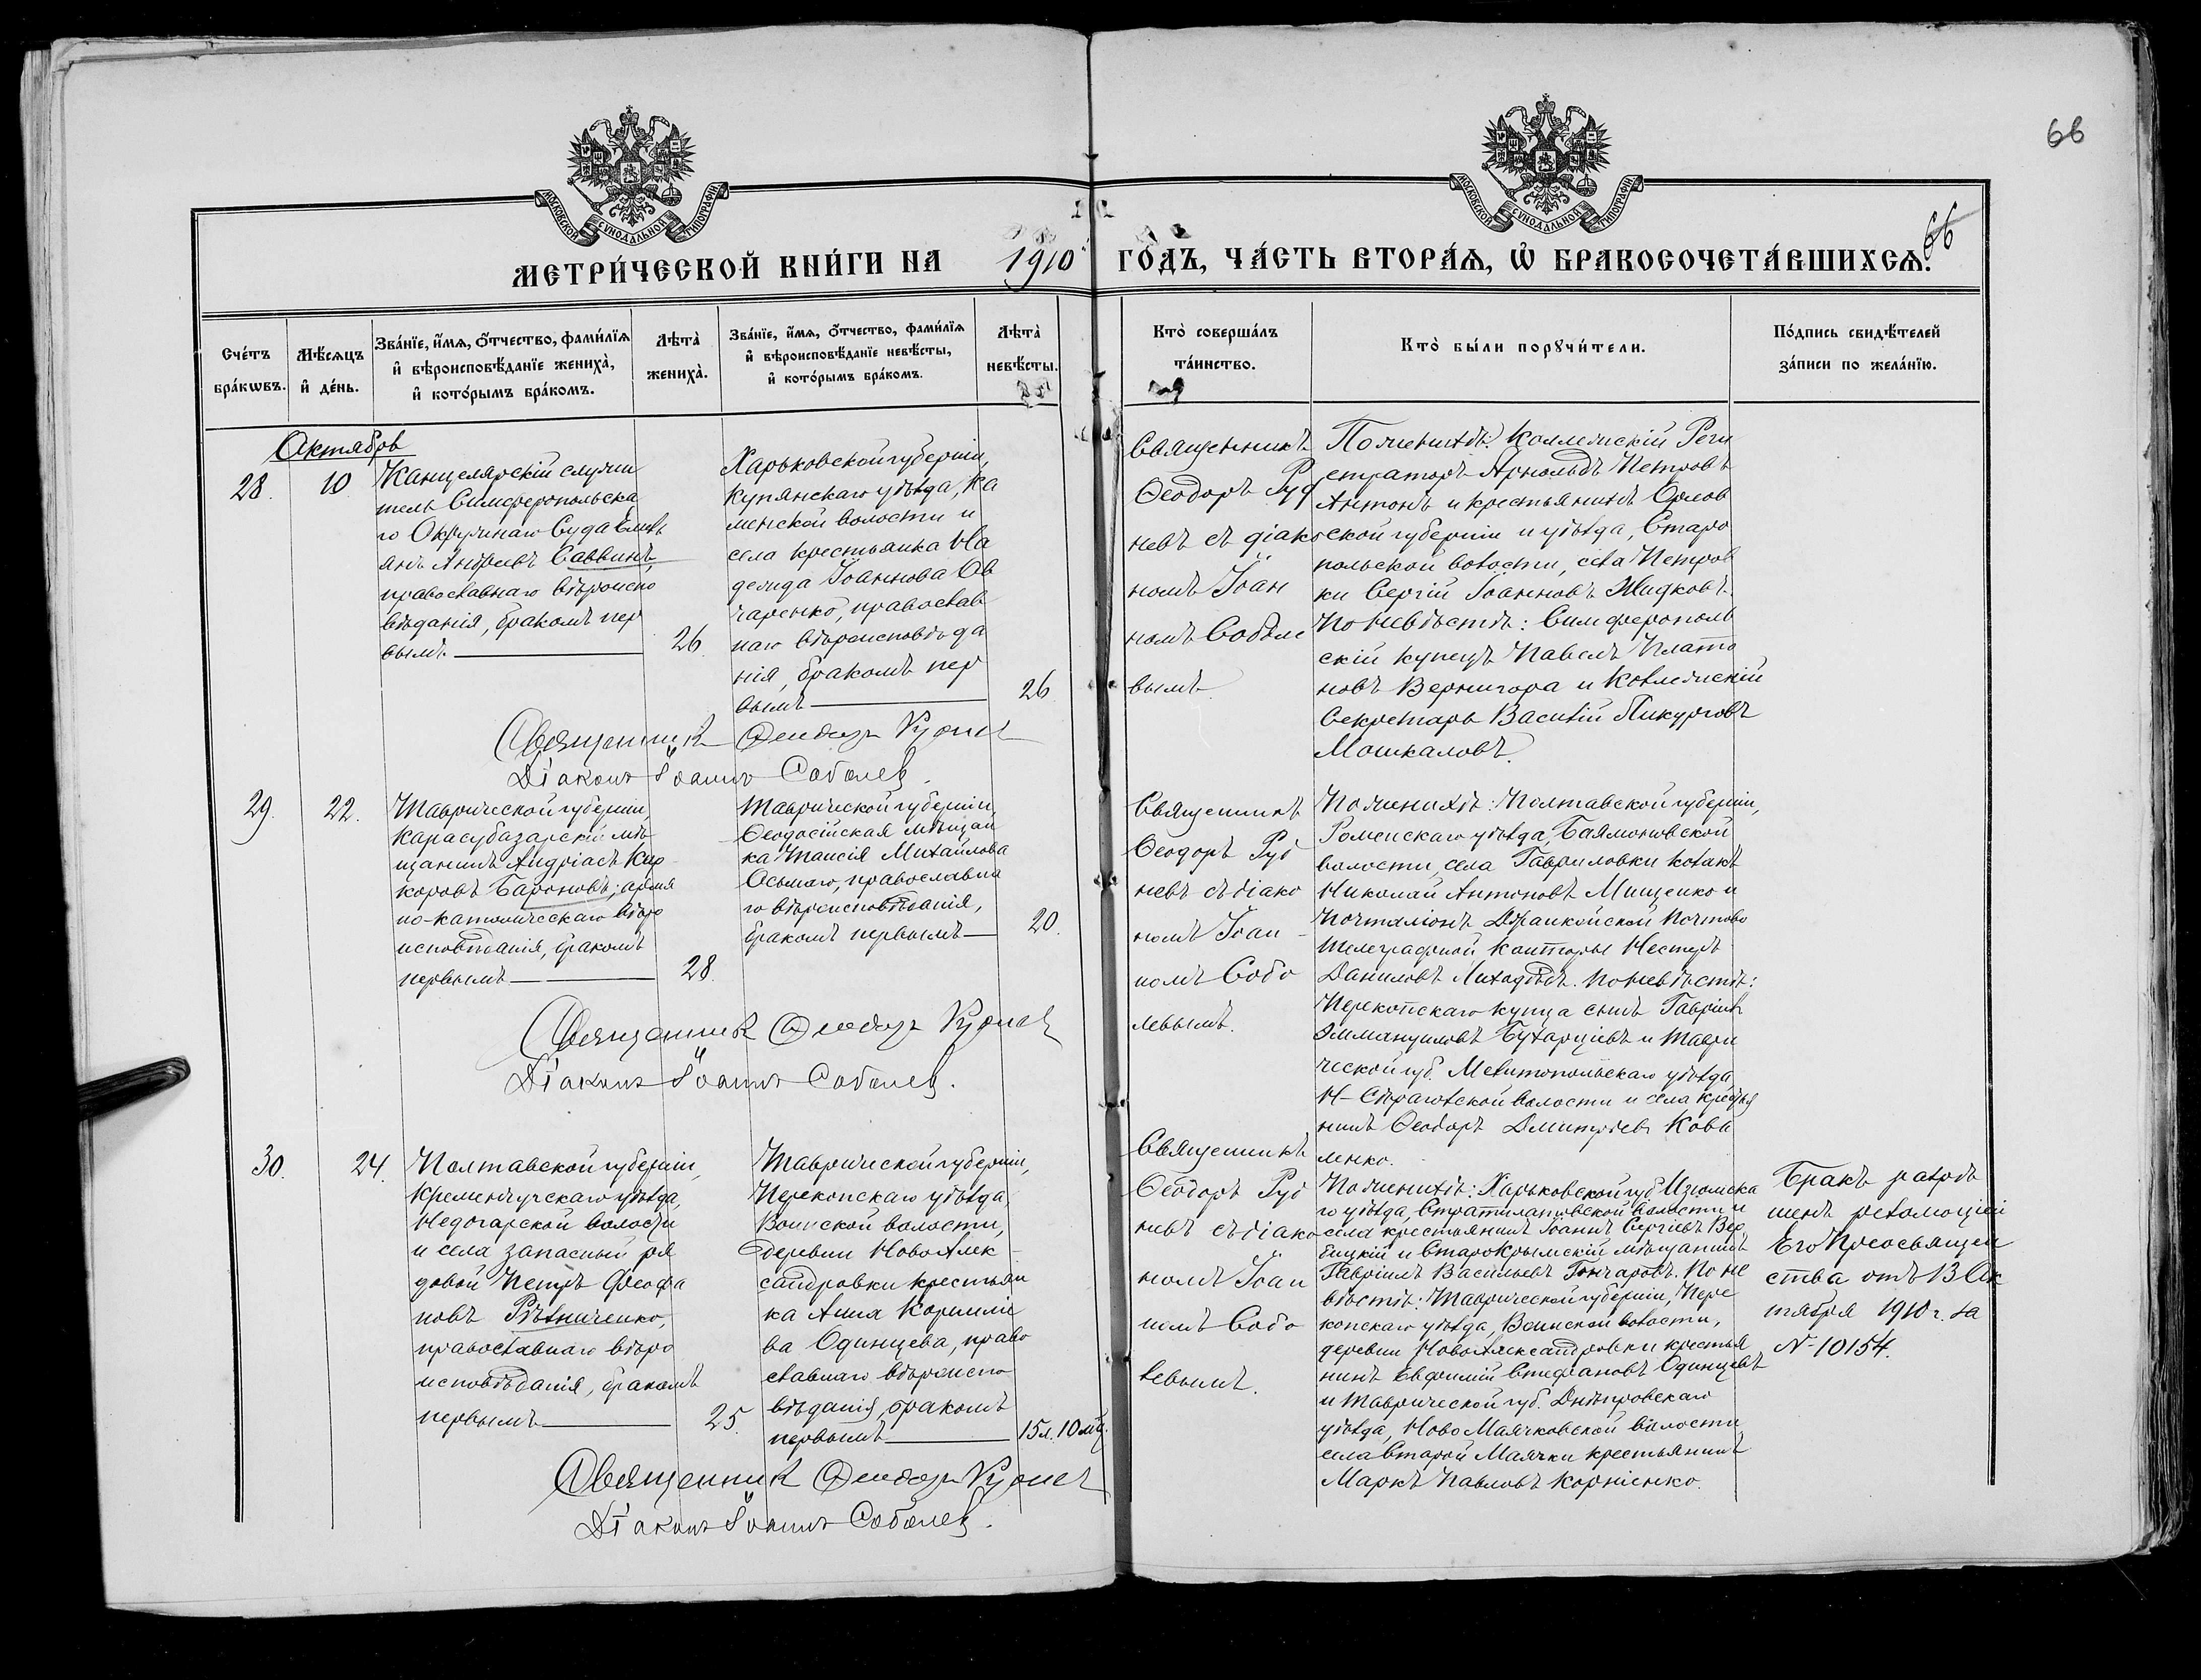 66
МОСКОВСКОЙ СѴНОДАЛЬНОЙ ТИПОГРАФІИ
МОСКОВСКОЙ СѴНОДАЛЬНОЙ ТИПОГРАФІИ
66
МЕТРИ́ЧЕСКОЙ КНИ́ГИ НА 1910 ГО́ДЪ, ЧА́СТЬ ВТОРА́Ѧ, Ѽ БРАКОСОЧЕТА́ВШИХСѦ.
Сче́тъ
бра́кѡвъ.
Мѣ́сѧцъ
и҆ де́нь.
Зва́нїе, и҆́мѧ, ѻ҆́тчество, фами́лїѧ
и҆ вѣроисповѣ́данїе жениха̀,
и҆ кото́рымъ бра́комъ.
Лѣта̀
жениха̀.
Зва́нїе, и҆́мѧ, ѻ҆́тчество, фами́лїѧ
и҆ вѣроисповѣ́данїе невѣ́сты,
и҆ кото́рымъ бра́комъ.
Лѣта̀
невѣ́сты.
Кто̀ соверша́лъ
та́инство.
Кто̀ бы́ли порꙋчи́тели.
По́дпись свидѣ́телей
за́писи по жела́нїю.
Октябрь
28.
10
Канцелярскій служи
тель Симферопольска
го Окружнаго Суда
Андреевъ Саввинъ,
православнаго вѣроиспо
вѣданія, бракомъ пер
вымъ
26.
Харьковской губерніи,
Купянскаго уѣзда, Ка
менской волости и
села крестьянка На
дежда Іоаннова Ов
чаренко, православ
наго вѣроисповѣда
нія, бракомъ пер
вымъ
26
Священникъ
Ѳеодоръ Руд
невъ съ діако
номъ Іоан
номъ Соболе
вымъ
По женихѣ: Коллежскій Реги
страторъ Арнольдъ Петровъ
Антонъ и крестьянинъ Орлов
ской губерніи и уѣзда, Старо
польской волости, села Петров
ки Сергій Іоанновъ Жидковъ.
По невѣстѣ: Симферополь
скій купецъ Павелъ Плато
новъ Вернигора и Коллежскій
Секретарь Василій Ликурговъ
Мошкаловъ.
Священникъ Ѳеодоръ Руднев
Діаконъ Іоаннъ Соболев.
29.
22.
Таврической губерніи,
Карасубазарскій мѣ
щанинъ Андріасъ Кир-
коровъ Бароновъ, армя
но-католическаго вѣро
исповѣданія, бракомъ
первымъ
28.
Таврической губерніи,
Ѳеодосійская мѣщан
ка Таисія Михайлова
Осьмаго, православна
го вѣроисповѣданія,
бракомъ первымъ
20.
Священникъ
Ѳеодоръ Руд
невъ съ діако
номъ Іоан-
номъ Собо
левымъ.
По женихѣ: Полтавской губерніи,
Роменскаго уѣзда,
волости, села Гавриловки козакъ
Николай Антоновъ Мищенко и
Почталіонъ Джанкойской Почтово
Телеграфной Конторы Несторъ
Даниловъ По невѣстѣ:
Перекопскаго купца сынъ Гавріилъ
Эммануиловъ и Таври
ческой губ. Мелитопольскаго уѣзда
Н- волости и села крестья
нинъ Ѳеодоръ Дмитріевъ Кова
ленко.
Священникъ Ѳеодоръ Руднев
Діаконъ Іоаннъ Соболев.
30.
24.
Полтавской губерніи,
Кременчугскаго уѣзда,
Недогарской волости
и села запасный ря
довой Петръ Ѳеофа
новъ Рѣзниченко,
православнаго вѣро
исповѣданія, бракомъ
первымъ
25.
Таврической губерніи,
Перекопскаго уѣзда,
Воинской волости,
деревни НовоАлек-
сандровки крестьян
ка Анна Корниліе
ва Одинцева, право
славнаго вѣроиспо
вѣданія, бракомъ
первымъ
15 л. 10 мц.
Священникъ
Ѳеодоръ Руд
невъ съ діако
номъ Іоан
номъ Собо
левымъ.
По женихѣ: Харьковской губ. Изюмска
го уѣзда, Стратилатовской волости и
села крестьянинъ Іоаннъ Сергіевъ Вер
бицкій и СтароКрымскій мѣщанинъ
Гавріилъ Васильевъ Гончаровъ. По не
вѣстѣ: Таврической губерніи, Пере
копскаго уѣзда, Воинской волости,
деревни НовоАлександровки крестья
нинъ Евфимій Стефановъ Одинцевъ
и Таврической губ. Днѣпровскаго
уѣзда, Ново Маячковской волости
села Старой Маячки крестьянинъ
Маркъ Павловъ Корніенко.
Бракъ разрѣ
шенъ резолюціей
Его Преосвящен
ства отъ 13 Ок
тября 1910 г. за
№ 10154.
Священникъ Ѳеодоръ Руднев
Діаконъ Іоаннъ Соболев.